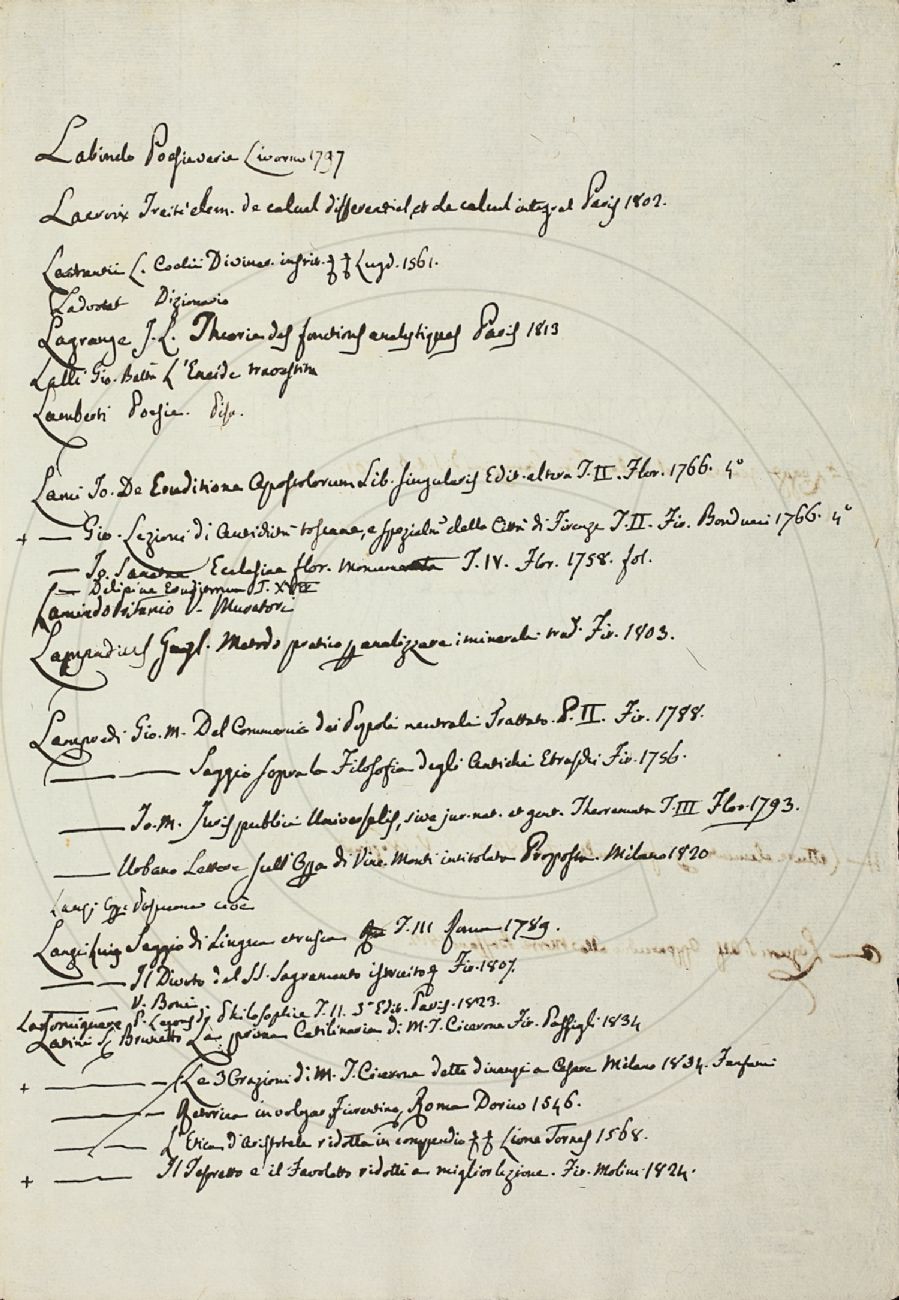 Labindo Poesie varie Livorno 1797
Lacroix Traité elem. de calcul differentiel, et de calcul integral Paris 1802.
Lactantii L. Coelii Divinar. instit. Lugd. 1561.
Ladvocat Dizionario
Lagrange J. L. Theorie des fonctions analytiques Paris 1813
Lalli Gio. Batta L'Eneide travestita
Lamberti Poesie. Pisa.
Lami Io. De Eruditione Apostolorum Lib. singularis Edit. altera T. II. Flor. 1766. 4°
+ — Gio. Lezioni di Antichità toscane, e spezialm. della Città di Firenze T. II. Fir. Bonducci 1766. 4°
— Io. Sanctae Ecclesiae flor. monumenta T. IV. Flor. 1758. fol.
— Deliciae Eruditorum T. XVIII
Lamindo Pritanio V. Muratori
Lampadius Gugl. Metodo pratico p analizzare i minerali trad. Fir. 1803.
Lampredi Gio. M. Del Commercio dei Popoli neutrali Trattato. P. II. Fir. 1788.
— — Saggio sopra la Filosofia degli Antichi Etruschi Fir. 1756.
— Io. M. Juris publici Universalis, sive jur. nat. et gent. Theoremata T. III Flor. 1793.
— Urbano Lettere sull' Opa di Vinc. Monti intitolata Proposta. Milano 1820
cioè
Lanzi Luigi Saggio di Lingua etrusca T. III Roma 1789.
— — Il Divoto del SS. Sagramento istruito Fir. 1807.
— V. Boni
Laromiguiere P. Leçons de Philosophie T. II. 3e Edit. Paris. 1823.
Latini Sr Brunetto La prima Catilinaria di M. T. Cicerone Fir. Passigli 1834
+ — — Le 3 Orazioni di M. T. Cicerone dette dinanzi a Cesare Milano 1832. Fanfani
— — Retorica in volgar fiorentino, Roma Dorico 1546.
— — L'Etica d'Aristotele ridotta in compendio Lione Tornes 1568.
+ — — Il Tesoretto e il Favoletto ridotti a miglior lezione. Fir. Molini 1824.